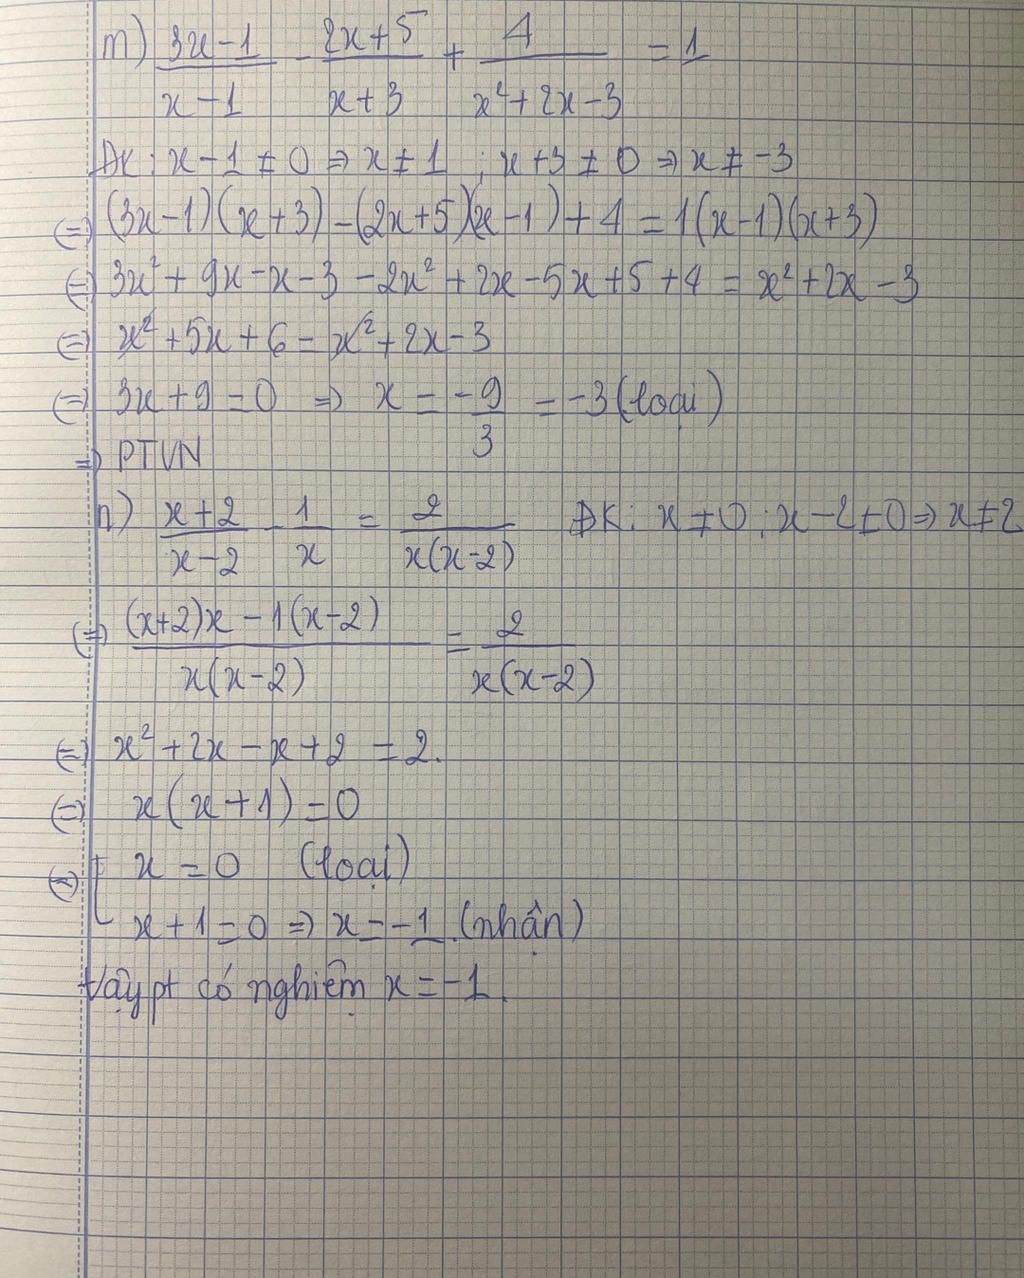 m) (3x-1)/(x-1) - (2x+5)/(x+3) + 4/(x²+2x-3) = 1
ĐK: x-1 ≠ 0 ⇒ x ≠ 1 ; x+3 ≠ 0 ⇒ x ≠ -3
(=) (3x-1)(x+3) - (2x+5)(x-1) + 4 = 1(x-1)(x+3)
(=) 3x² + 9x - x - 3 - 2x² + 2x - 5x + 5 + 4 = x² + 2x - 3
(=) x² + 5x + 6 = x² + 2x - 3
(=) 3x + 9 = 0 ⇒ x = -9/3 = -3 (loại)
⇒ PTVN
n) (x+2)/(x-2) - 1/x = 2/(x(x-2)) ĐK: x ≠ 0 ; x-2 ≠ 0 ⇒ x ≠ 2
(=) ((x+2)x - 1(x-2))/(x(x-2)) = 2/(x(x-2))
(=) x² + 2x - x + 2 = 2.
(=) x(x+1) = 0
(=) [ x = 0 (loại)
x + 1 = 0 ⇒ x = -1 (nhận)
Vậy pt có nghiệm x = -1.